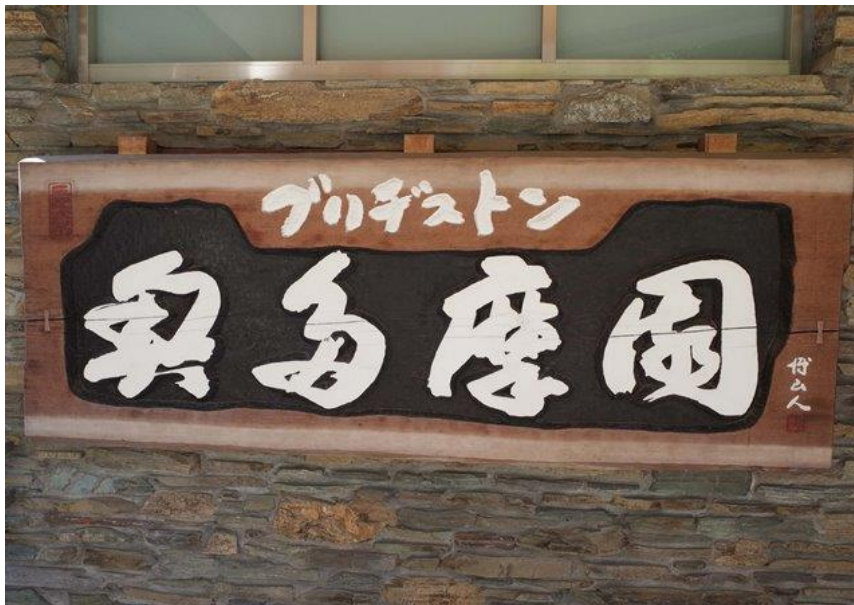 ブリヂストン
奥多摩園